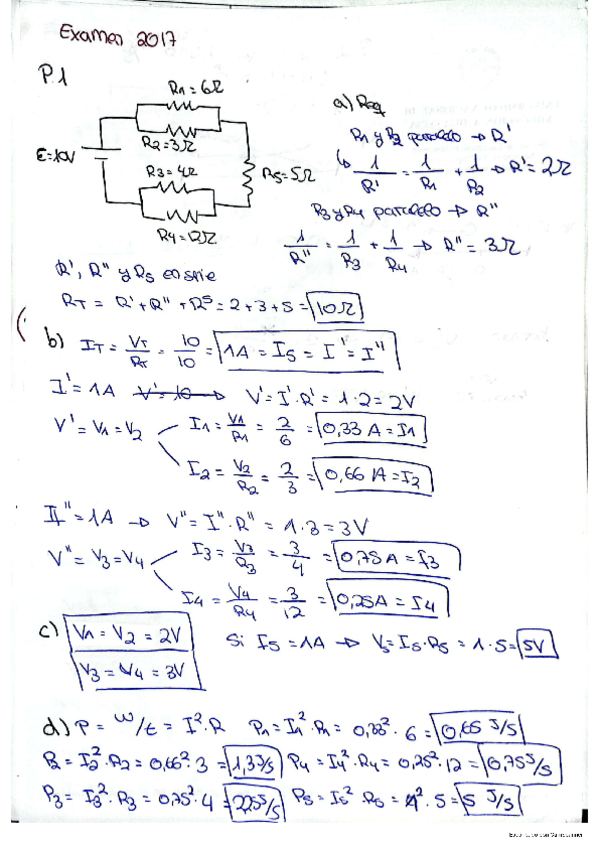 Examen 2017
P.1
R1 = 6Ω
R2 = 3Ω
E = 10V
R3 = 4Ω
R5 = 5Ω
R4 = 12Ω
a) Req
R1 y R2 paralelo → R'
↳ 1/R' = 1/R1 + 1/R2 → R' = 2Ω
R3 y R4 paralelo → R''
1/R'' = 1/R3 + 1/R4 → R'' = 3Ω
R', R'' y R5 en serie
RT = R' + R'' + R5 = 2 + 3 + 5 = 10Ω
b) IT = VT/RT = 10/10 = 1A = I5 = I' = I''
I' = 1A V' = 10 → V' = I'·R' = 1·2 = 2V
V' = V1 = V2
I1 = V1/R1 = 2/6 = 0,33 A = I1
I2 = V2/R2 = 2/3 = 0,66 A = I2
I'' = 1A → V'' = I''·R'' = 1·3 = 3V
V'' = V3 = V4
I3 = V3/R3 = 3/4 = 0,75A = I3
I4 = V4/R4 = 3/12 = 0,25A = I4
c) V1 = V2 = 2V
V3 = V4 = 3V
Si I5 = 1A → V5 = I5·R5 = 1·5 = 5V
d) P = W/t = I²·R P1 = I1²·R1 = 0,33²·6 = 0,65 J/s
P2 = I2²·R2 = 0,66²·3 = 1,3 J/s P4 = I4²·R4 = 0,25²·12 = 0,75 J/s
P3 = I3²·R3 = 0,75²·4 = 2,25 J/s P5 = I5² R5 = 1²·5 = 5 J/s